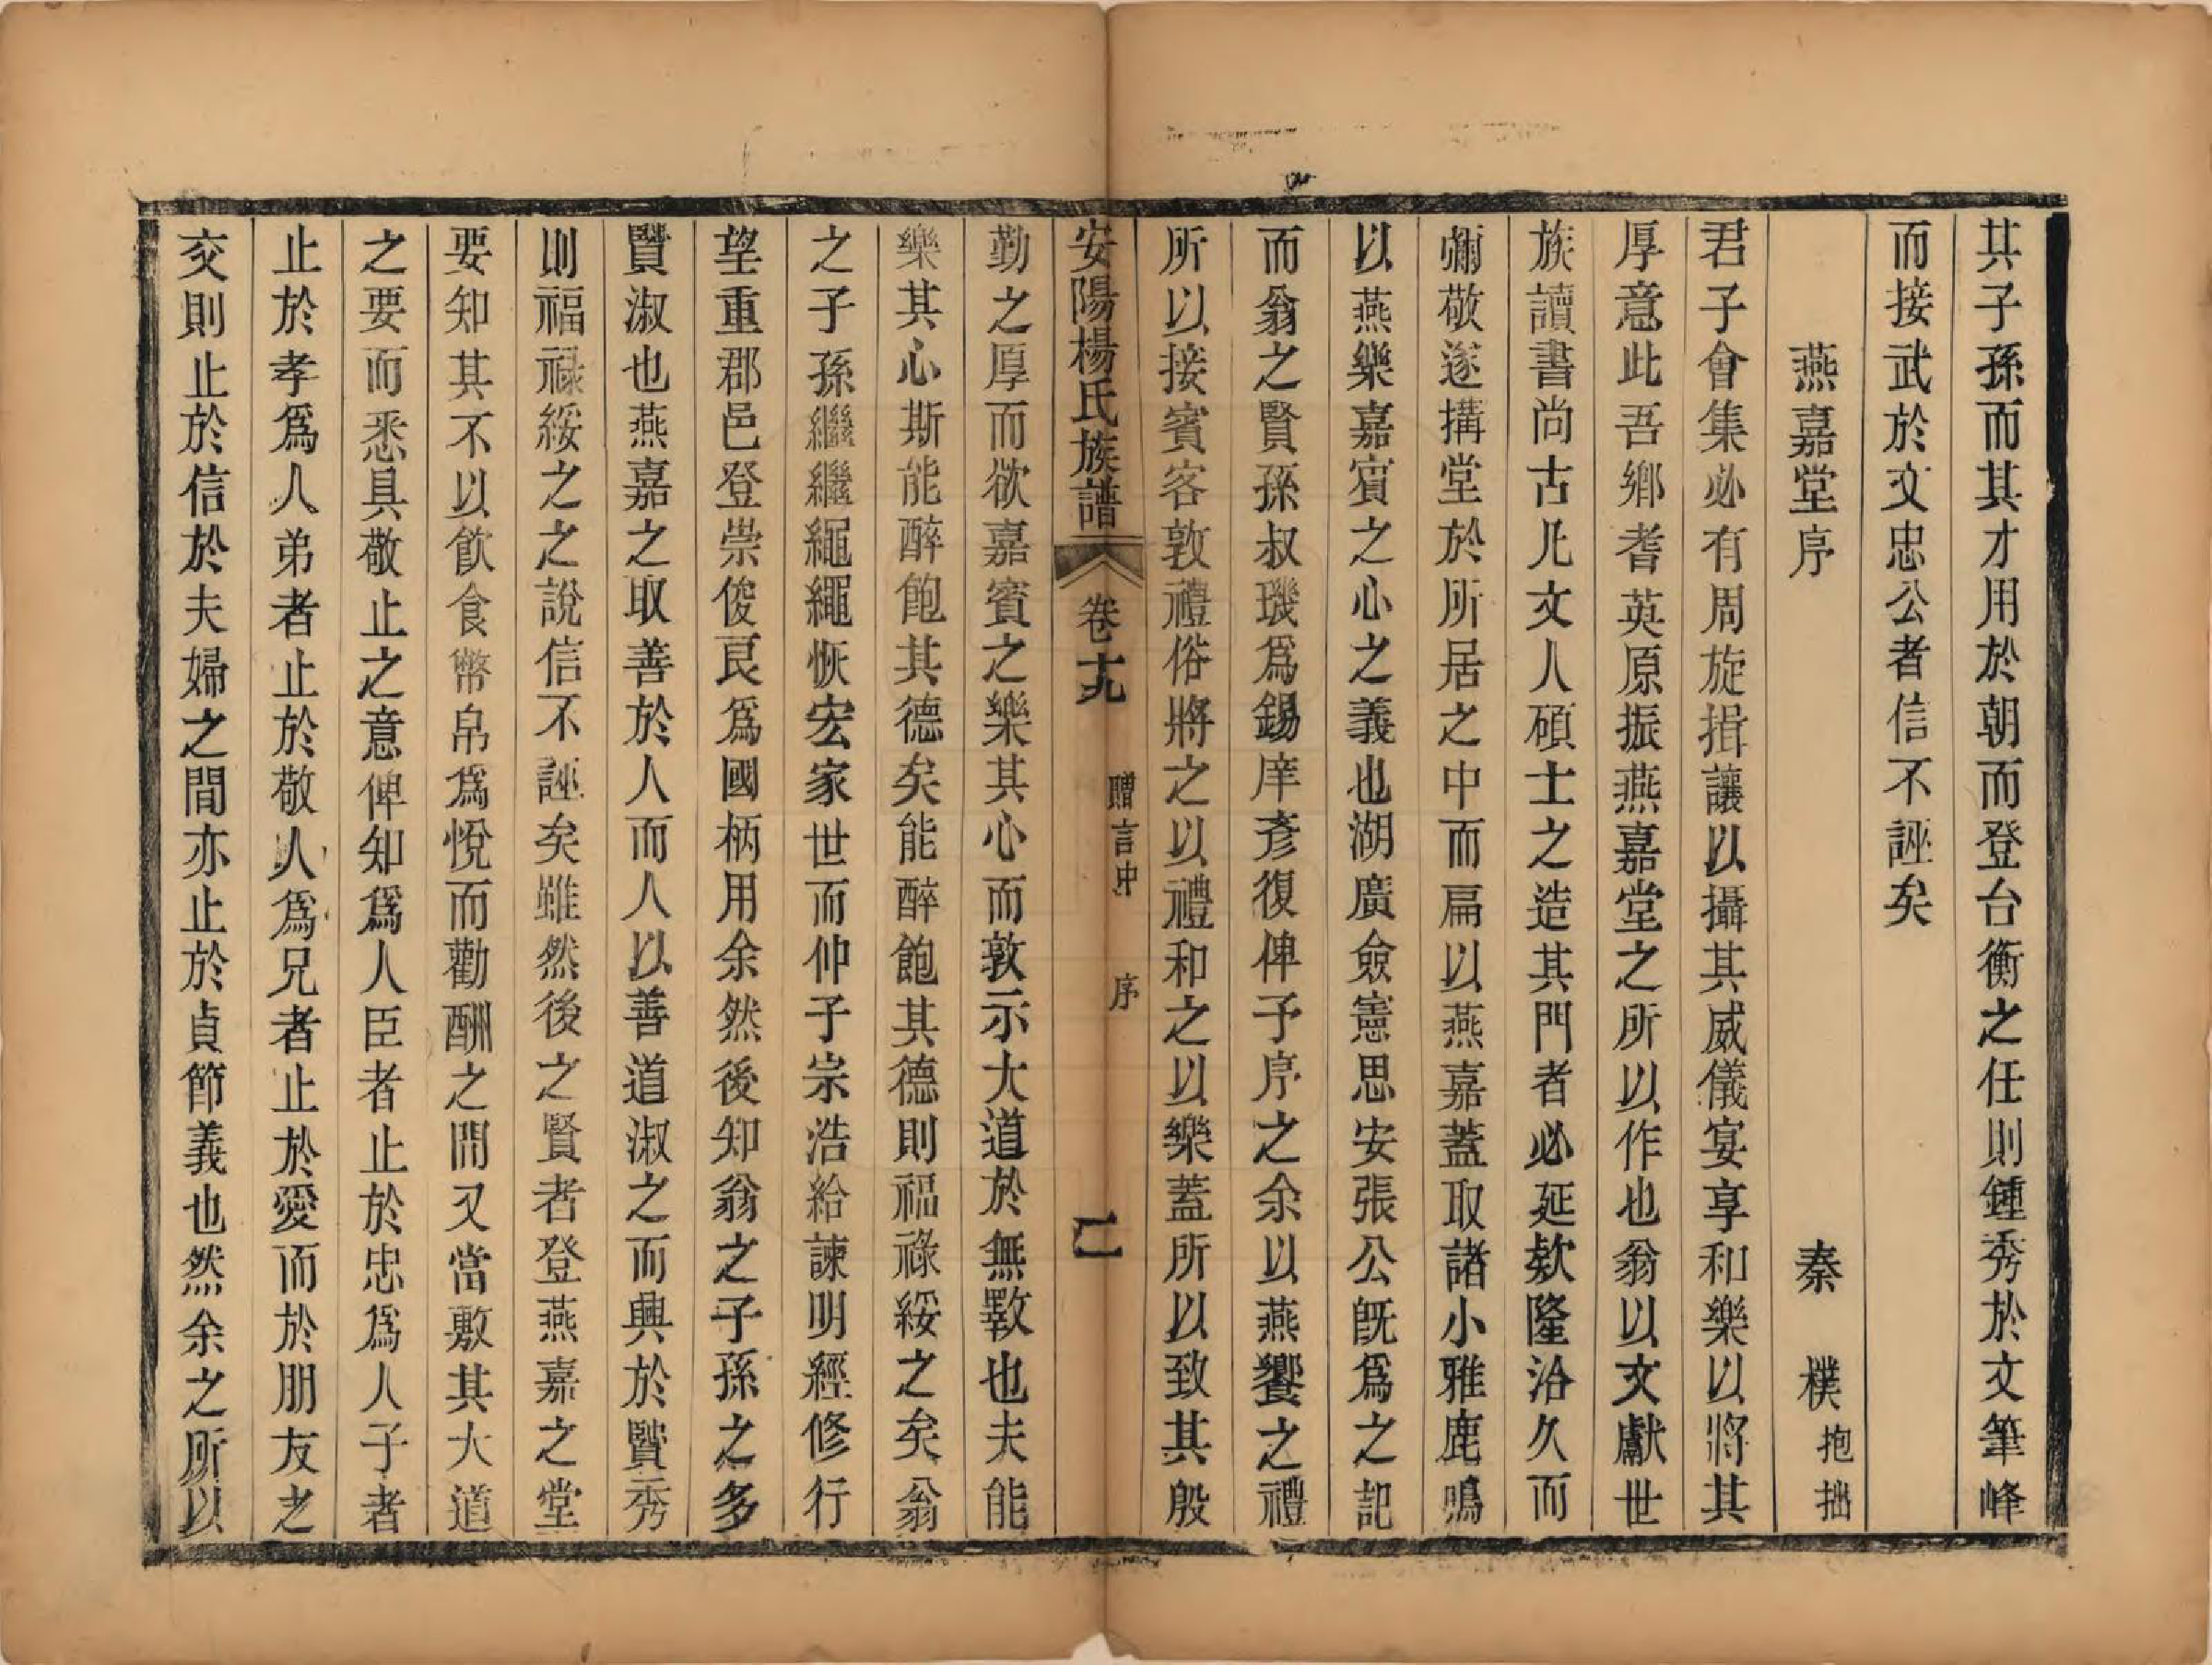 其子孫而其才用於朝而登台衡之任則鍾秀於文筆峰
而接武於文忠公者信不誣矣
燕嘉堂序 秦樸抱拙
君子會集必有周旋揖讓以攝其威儀宴享和樂以將其
厚意此吾鄉耆英原振燕嘉堂之所以作也翁以文獻世
族讀書尚古凡文人碩士之造其門者必延欵隆洽久而
彌敬遂搆堂於所居之中而扁以燕嘉蓋取諸小雅鹿鳴
以燕樂嘉賓之心之義也湖廣僉憲思安張公旣爲之記
而翁之賢孫叔璣爲錫庠彥復俾予序之余以燕饗之禮
所以接賓客敦禮俗將之以禮和之以樂蓋所以致其殷
安陽楊氏族譜 卷十九 贈言中 序 二
勤之厚而欲嘉賓之樂其心而敦示大道於無斁也夫能
樂其心斯能醉飽其德矣能醉飽其德則福祿綏之矣翁
之子孫繼繼繩繩恢宏家世而仲子崇浩給諫明經修行
望重郡邑登崇俊良爲國柄用余然後知翁之子孫之多
賢淑也燕嘉之取善於人而人以善道淑之而興於賢秀
則福祿綏之之說信不誣矣雖然後之賢者登燕嘉之堂
要知其不以飮食幣帛爲悅而勸酬之間又當敷其大道
之要而悉具敬止之意俾知爲人臣者止於忠爲人子者
止於孝爲人弟者止於敬人爲兄者止於愛而於朋友之
交則止於信於夫婦之間亦止於貞節義也然余之所以